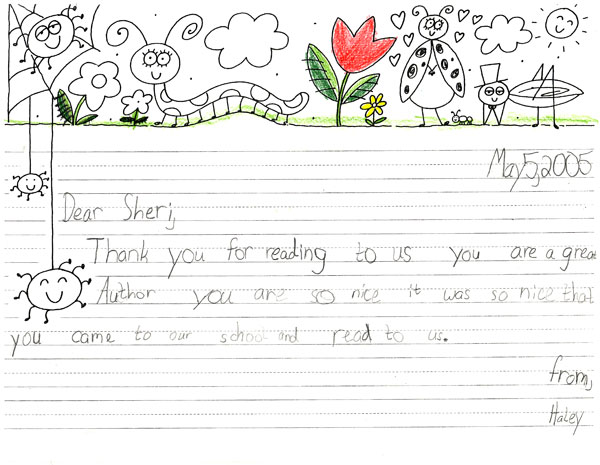 May 5, 2005
Dear Sheri,
Thank you for reading to us you are a great
Author you are so nice it was so nice that
you came to our school and read to us.
from,
Haley